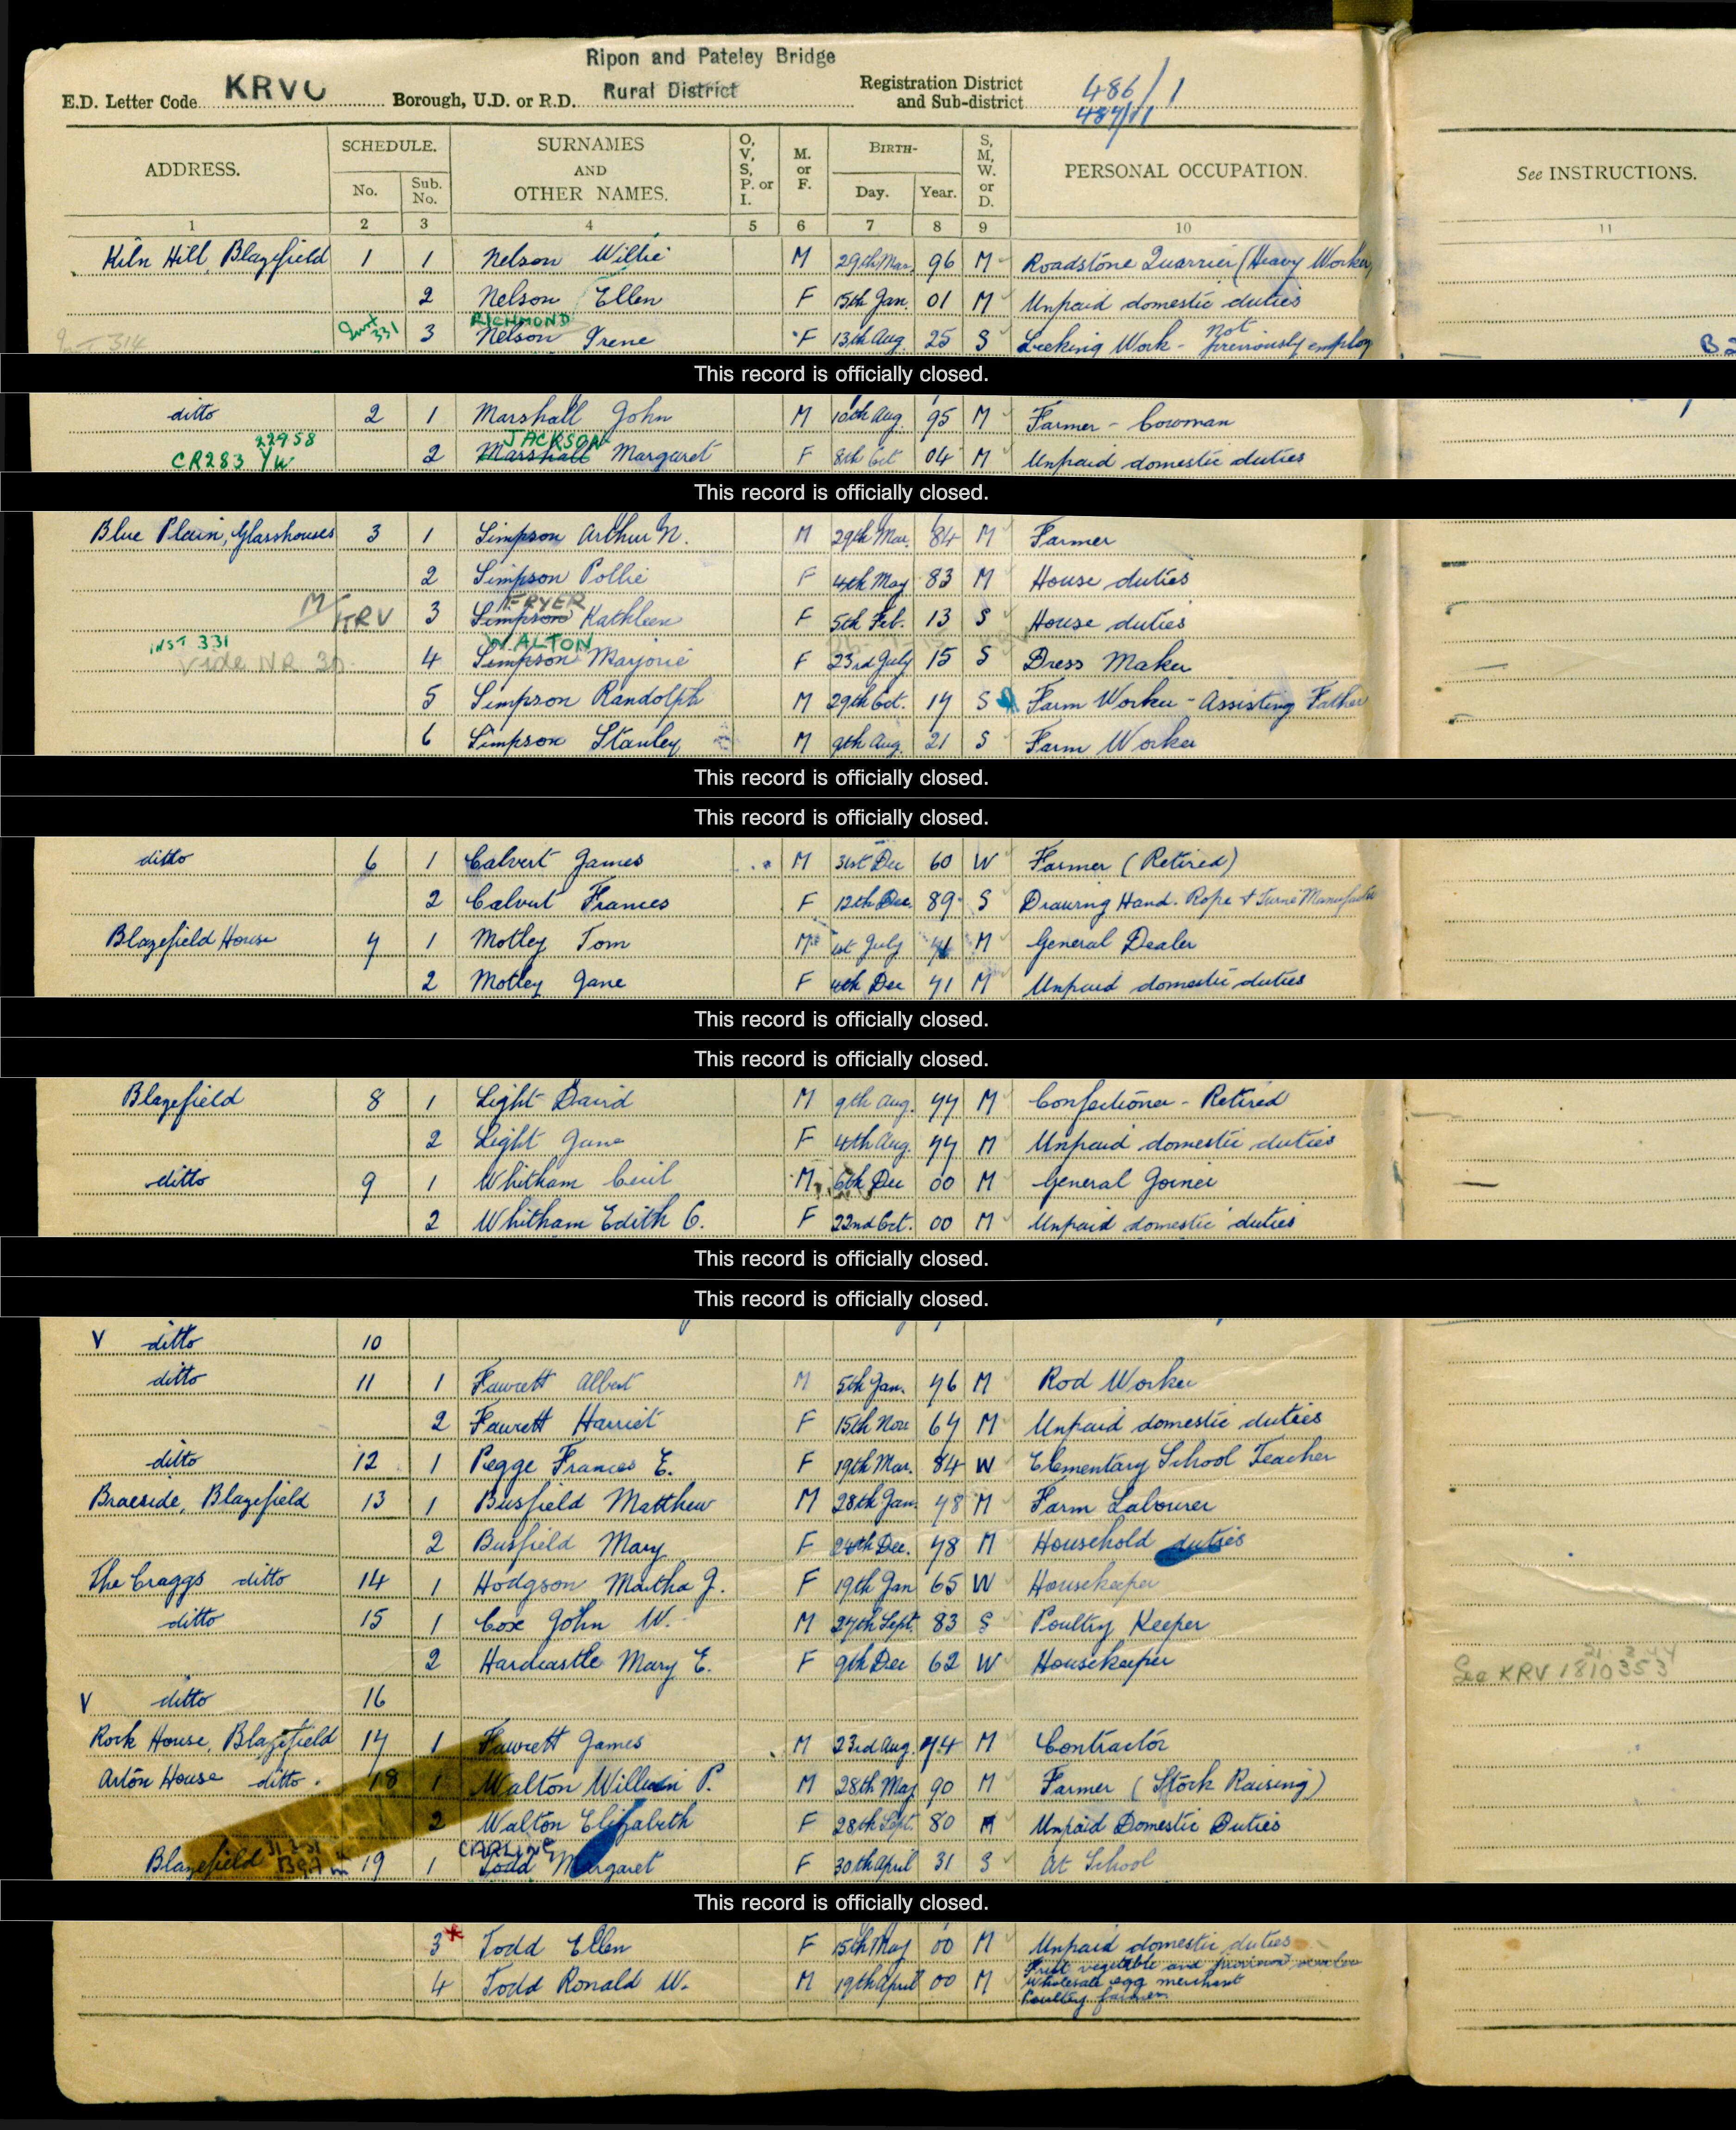 Ripon and Pateley Bridge
E.D. Letter Code KRVC Borough, U.D. or R.D. Rural District Registration District and Sub-district 486/1
487/1
ADDRESS. SCHEDULE. No. Sub. No. SURNAMES AND OTHER NAMES. O, V, S, P. or I. M. or F. BIRTH- Day. Year. S, M, W. or D. PERSONAL OCCUPATION. See INSTRUCTIONS.
1 2 3 4 5 6 7 8 9 10 11
Kiln Hill, Blazefield 1 1 Nelson Willie M 29th Mar. 96 M Roadstone Quarrier (Heavy Worker)
2 Nelson Ellen F 15th Jan. 01 M Unpaid domestic duties
RICHMOND
331 3 Nelson Irene F 13th Aug. 25 S Seeking Work - Not previously employ
314
This record is officially closed.
ditto 2 1 Marshall John M 10th Aug. 95 M Farmer - Cowman
22958 JACKSON
CR283 YW 2 Marshall Margaret F 8th Oct 04 M Unpaid domestic duties
This record is officially closed.
Blue Plain, Glasshouses 3 1 Simpson Arthur N. M 29th Mar. 84 M Farmer
2 Simpson Pollie F 4th May 83 M House duties
FRYER
M/KRV 3 Simpson Kathleen F 5th Feb. 13 S House duties
INST 331 WALTON
Vide NR 4 Simpson Marjorie F 23rd July 15 S Dress Maker
5 Simpson Randolph M 29th Oct. 17 S Farm Worker - Assisting Father
6 Simpson Stanley M 9th Aug. 21 S Farm Worker
This record is officially closed.
This record is officially closed.
ditto 6 1 Calvert James M 31st Dec 60 W Farmer (Retired)
2 Calvert Frances F 12th Dec. 89 S Drawing Hand. Rope & Twine Manufactr
Blazefield House 7 1 Motley Tom M 1st July 71 M General Dealer
2 Motley Jane F 4th Dec 71 M Unpaid domestic duties
This record is officially closed.
This record is officially closed.
Blazefield 8 1 Light David M 9th Aug. 77 M Confectioner - Retired
2 Light Jane F 4th Aug. 77 M Unpaid domestic duties
ditto 9 1 Whitham Cecil M 6th Dec 00 M General Joiner
2 Whitham Edith C. F 22nd Oct. 00 M Unpaid domestic duties
This record is officially closed.
This record is officially closed.
V ditto 10
ditto 11 1 Fawcett Albert M 5th Jan. 76 M Rod Worker
2 Fawcett Harriet F 15th Nov 67 M Unpaid domestic duties
ditto 12 1 Pegge Frances E. F 19th Mar. 84 W Elementary School Teacher
Braeside, Blazefield 13 1 Busfield Matthew M 28th Jan. 78 M Farm Labourer
2 Busfield Mary F 24th Dec. 78 M Household duties
The Craggs ditto 14 1 Hodgson Martha J. F 19th Jan 65 W Housekeeper
ditto 15 1 Cox John W. M 27th Sept. 83 S Poultry Keeper
2 Hardcastle Mary E. F 9th Dec 62 W Housekeeper See KRV 1810353
V ditto 16
Rock House, Blazefield 17 1 Fawcett James M 23rd Aug. 74 M Contractor
Arton House ditto 18 1 Walton William P. M 28th May 90 M Farmer (Stock Raising)
2 Walton Elizabeth F 28th Sept. 80 M Unpaid Domestic Duties
CARLINE
Blazefield 19 1 Todd Margaret F 30th April 31 S At School
This record is officially closed.
3 Todd Ellen F 15th May 00 M Unpaid domestic duties
4 Todd Ronald W. M 19th April 00 M Fruit vegetable and
Wholesale egg merchant
Poultry farmer